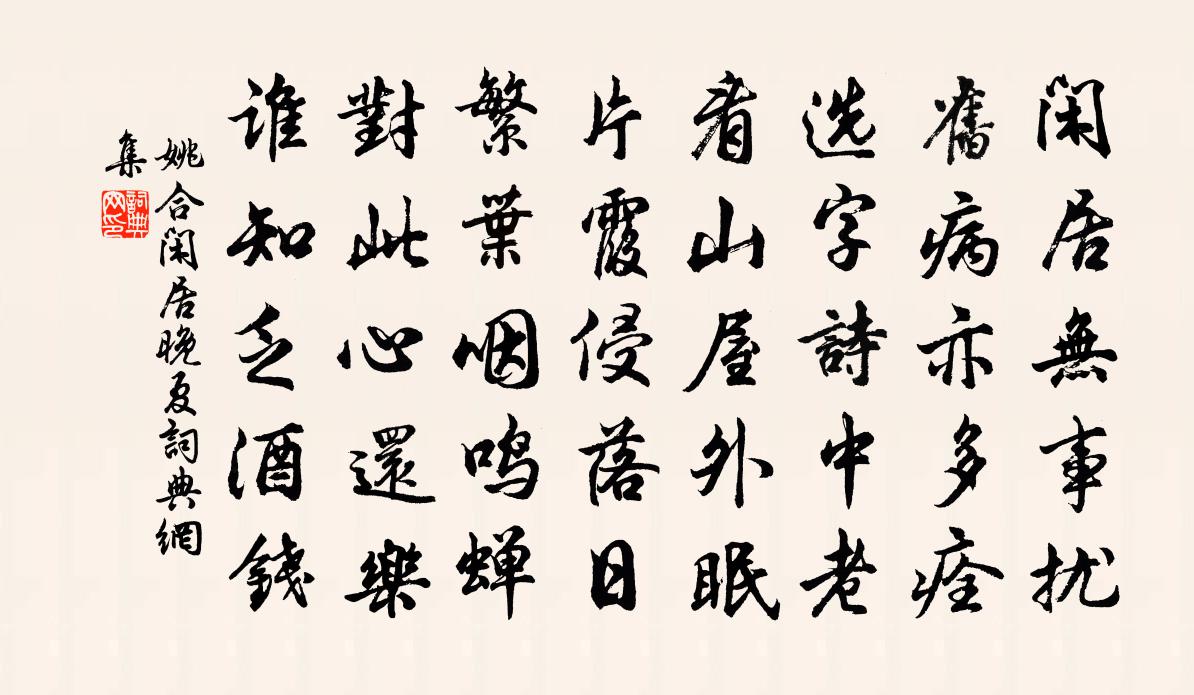 閑居無事扰
舊病亦多痊
选字詩中老
看山屋外眠
片霞侵落日
繁葉咽鸣蝉
對此心還樂
谁知乏酒錢
姚合閑居晚夏詞典網
集
詞典網印